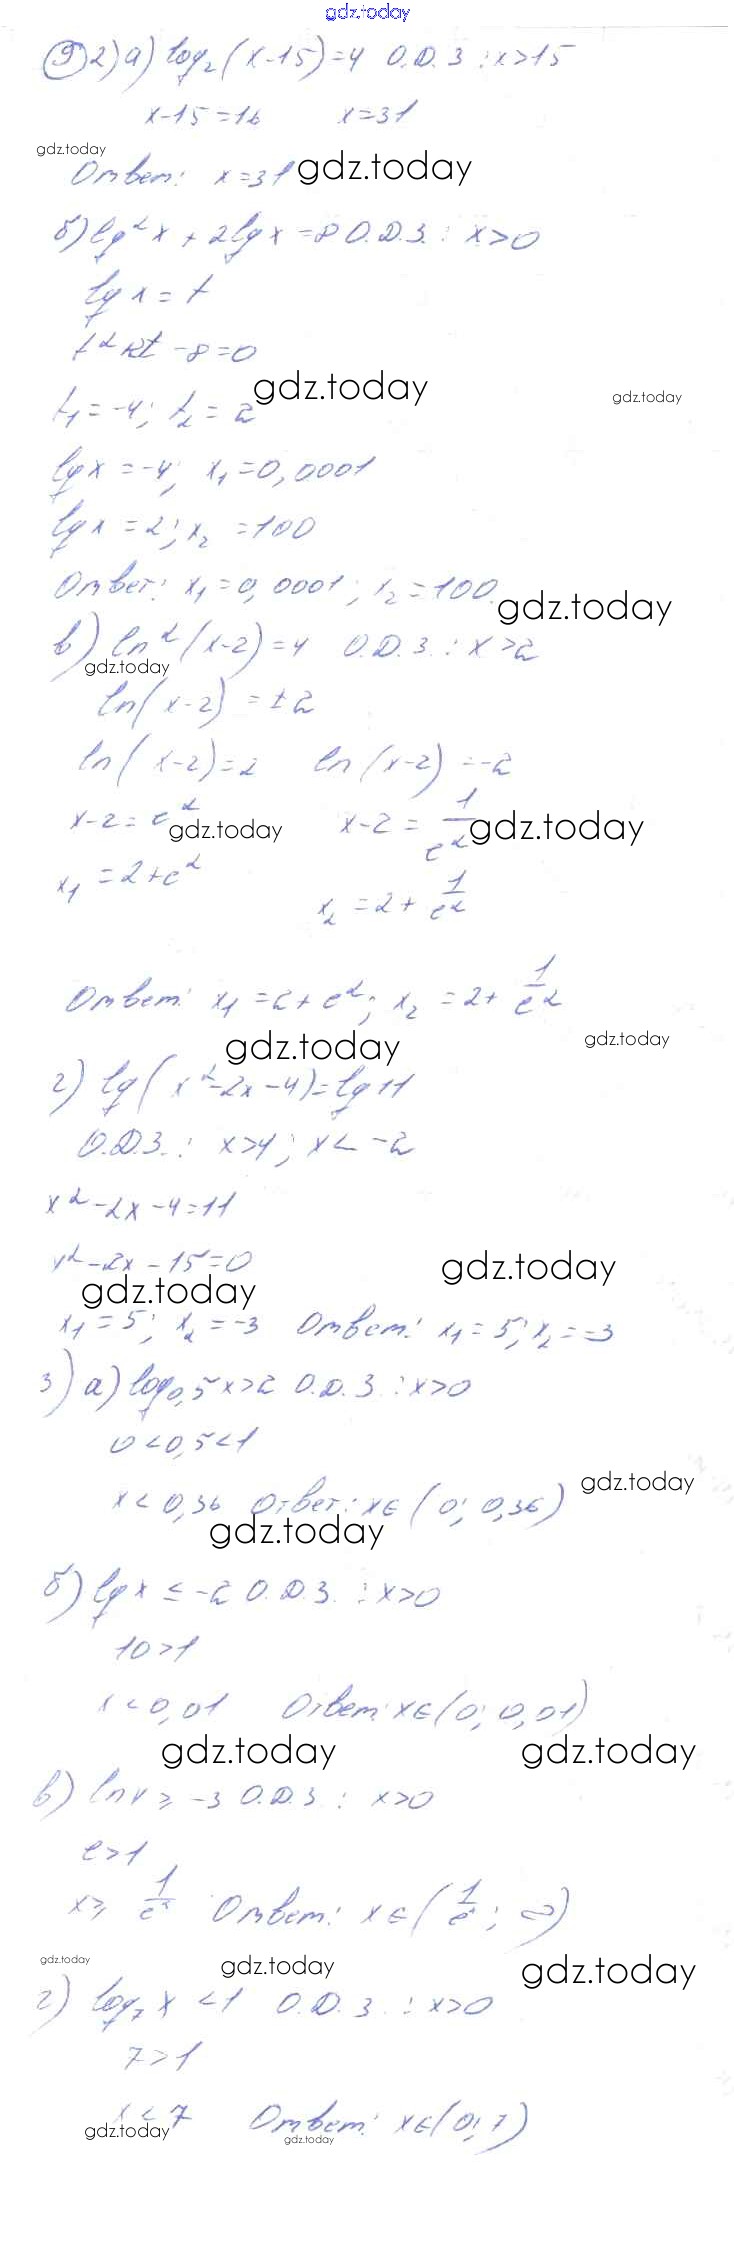 gdz.today
9 2) а) log₂(x-15)=4 О.Д.З: x>15
x-15=16 x=31
gdz.today
Ответ: x=31 gdz.today
б) lg²x + 2lgx =8 О.Д.З.: x>0
lgx = t
t²+2t -8=0
gdz.today gdz.today
t₁=-4; t₂=2
lgx =-4; x₁=0,0001
lgx =2; x₂ =100
Ответ: x₁=0,0001; x₂=100. gdz.today
в) ln²(x-2)=4 О.Д.З.: x>2
gdz.today
ln(x-2) =±2
ln(x-2)=2 ln(x-2) =-2
x-2= e² gdz.today x-2 = 1/e² gdz.today
x₁ =2+e²
x₂ =2+ 1/e²
Ответ: x₁ =2+e²; x₂ =2+ 1/e²
gdz.today gdz.today
г) lg(x²-2x-4)=lg11
О.Д.З.: x>4; x< -2
x²-2x-4=11
x²-2x-15=0 gdz.today
gdz.today
x₁=5; x₂=-3 Ответ: x₁=5; x₂=-3
3) а) log₀,₅x>2 О.Д.З: x>0
0<0,5<1
gdz.today
x<0,36 Ответ: x∈(0; 0,36)
gdz.today
б) lgx ≤ -2 О.Д.З.: x>0
10>1
x<0,01 Ответ: x∈(0; 0,01)
gdz.today gdz.today
в) lnx ≥ -3 О.Д.З: x>0
e>1
gdz.today gdz.today gdz.today
г) log₇x <1 О.Д.З.: x>0
7>1
x<7 Ответ: x∈(0;7)
gdz.today gdz.today